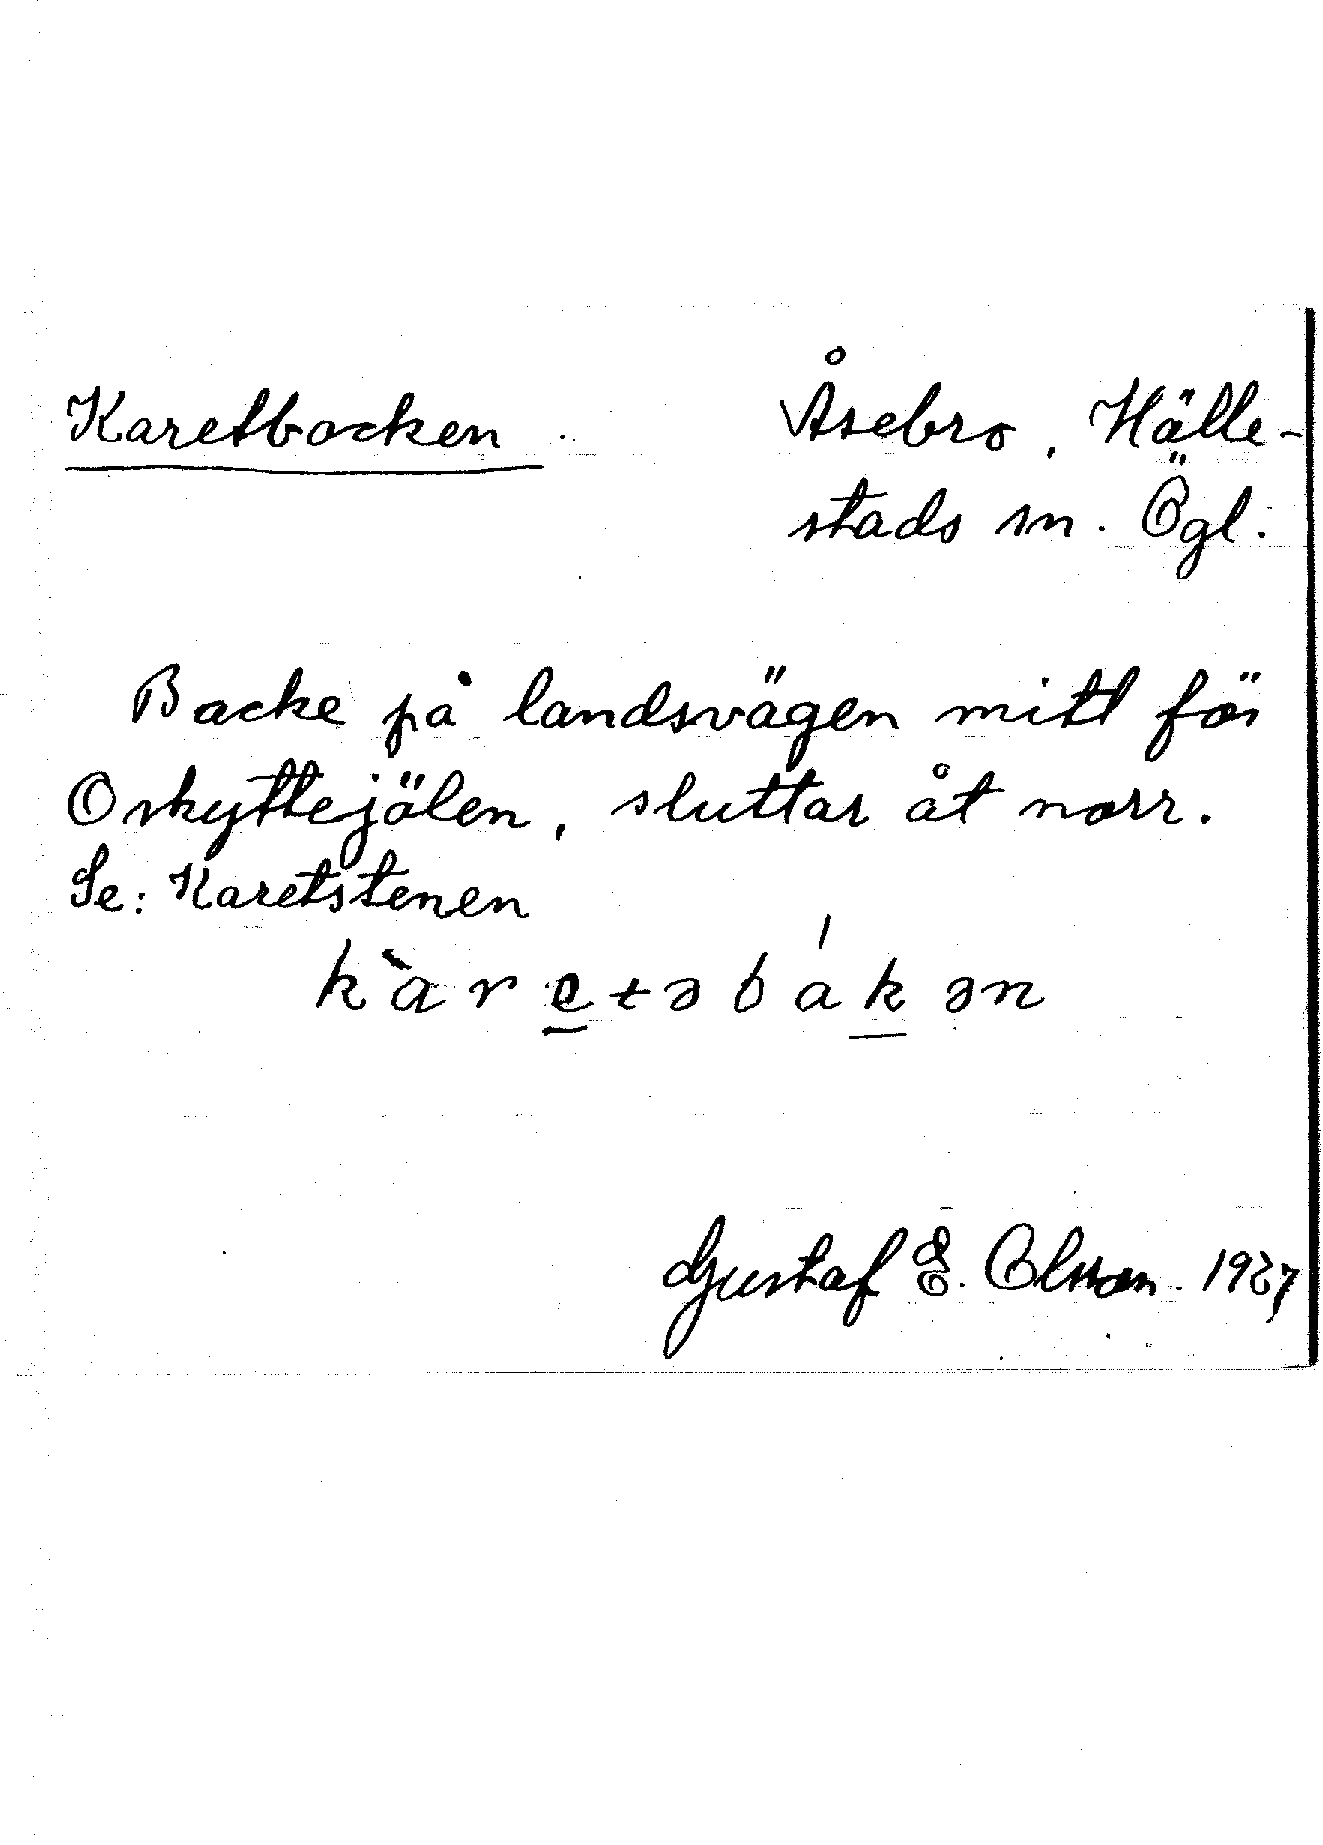 Karetbacken. Åsebro, Hälle-
stads sn. Ögl.
Backe på landsvägen mitt för
Oskyttejölen, sluttar åt norr.
Se: Karetstenen
kàretəbákən
Gustaf E. Olsson. 1927